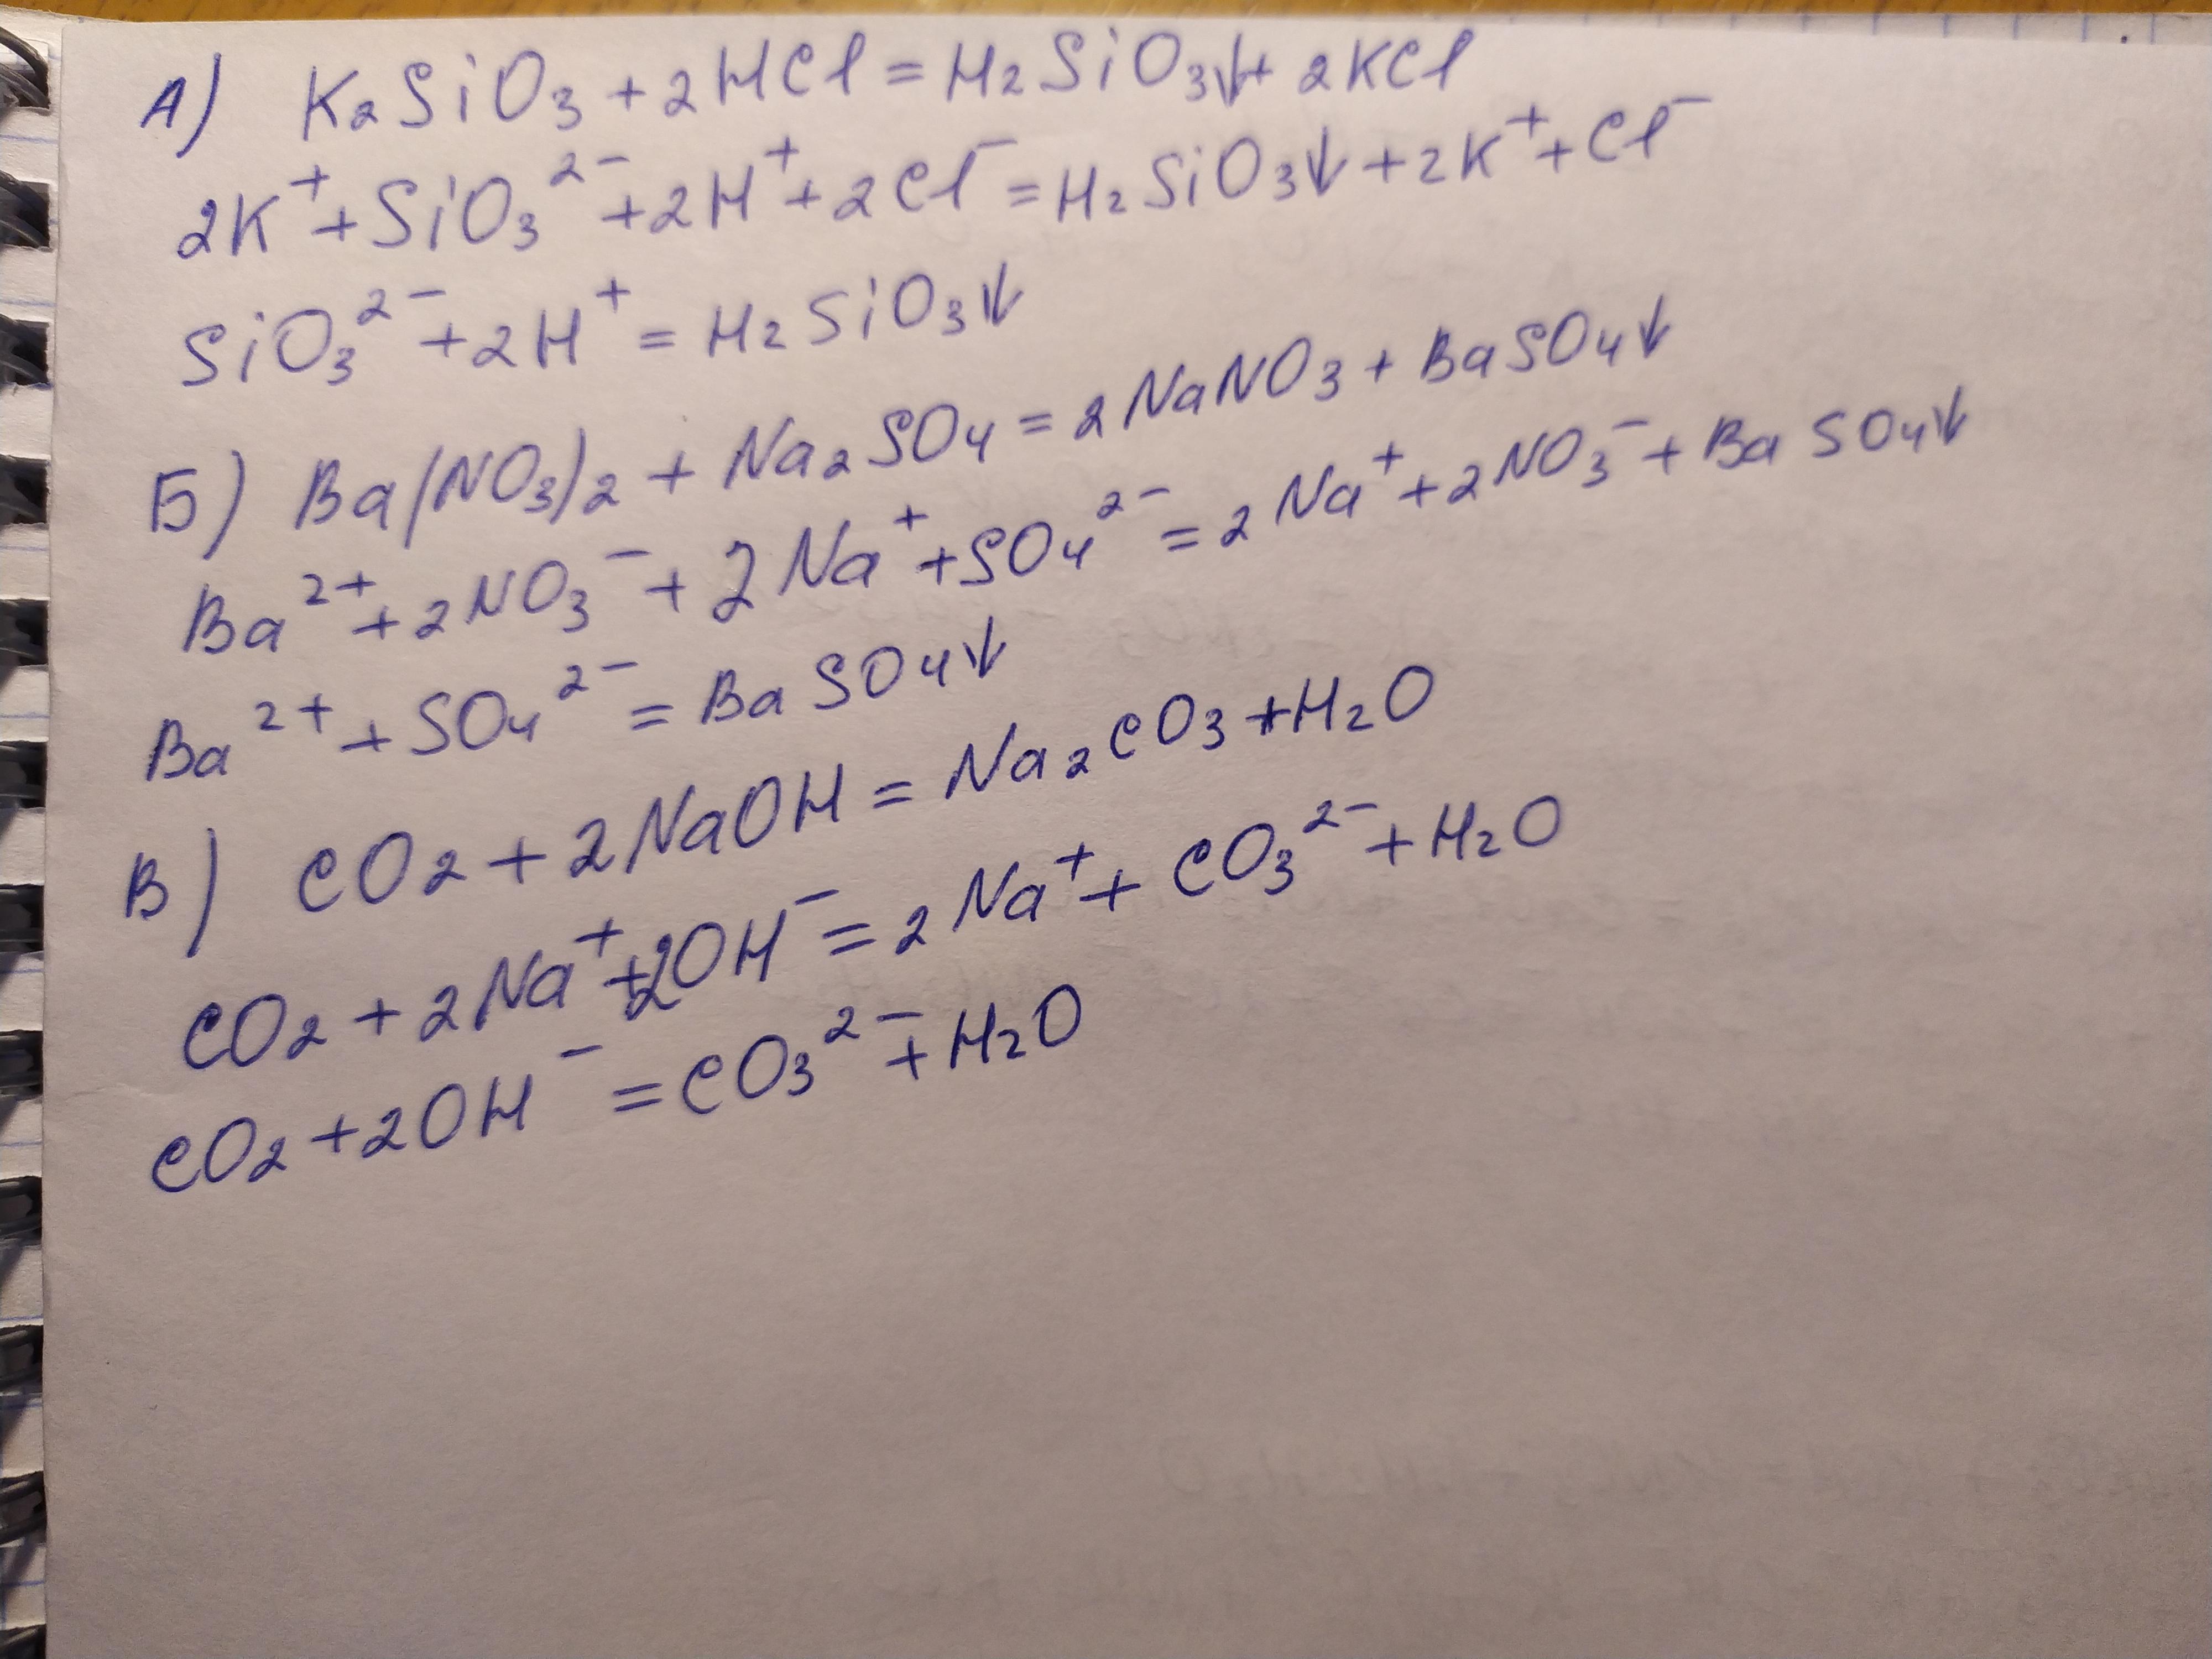 А) K₂SiO₃ + 2HCl = H₂SiO₃↓ + 2KCl
2K⁺ + SiO₃²⁻ + 2H⁺ + 2Cl⁻ = H₂SiO₃↓ + 2K⁺ + Cl⁻
SiO₃²⁻ + 2H⁺ = H₂SiO₃↓
Б) Ba(NO₃)₂ + Na₂SO₄ = 2NaNO₃ + BaSO₄↓
Ba²⁺ + 2NO₃⁻ + 2Na⁺ + SO₄²⁻ = 2Na⁺ + 2NO₃⁻ + BaSO₄↓
Ba²⁺ + SO₄²⁻ = BaSO₄↓
В) CO₂ + 2NaOH = Na₂CO₃ + H₂O
CO₂ + 2Na⁺ + 2OH⁻ = 2Na⁺ + CO₃²⁻ + H₂O
CO₂ + 2OH⁻ = CO₃²⁻ + H₂O